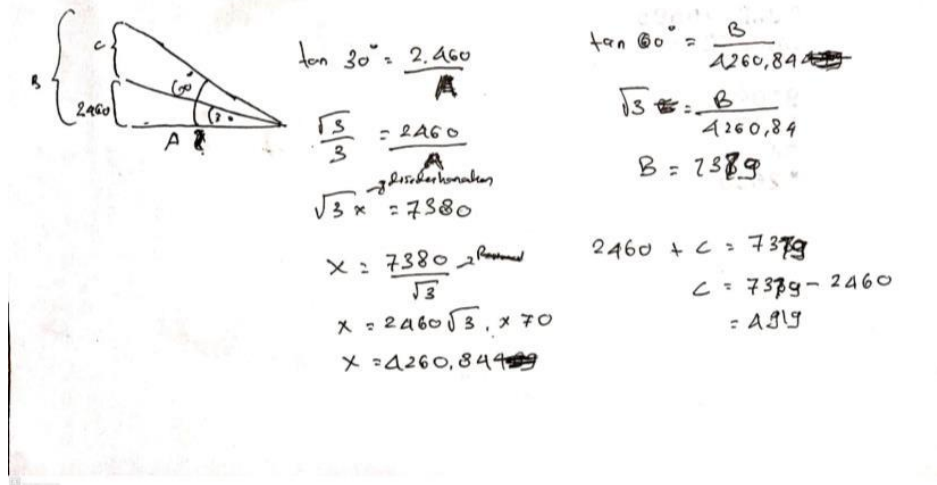 B
C
2460
60°
30
A
tan 30° = 2.460 / A
√3 / 3 = 2460 / A
disederhanakan
√3 x = 7380
x = 7380 / √3
x = 2460 √3, x > 0
x = 4260,844
tan 60° = B / 4260,84
√3 = B / 4260,84
B = 7379
2460 + C = 7379
C = 7379 - 2460
= 4919